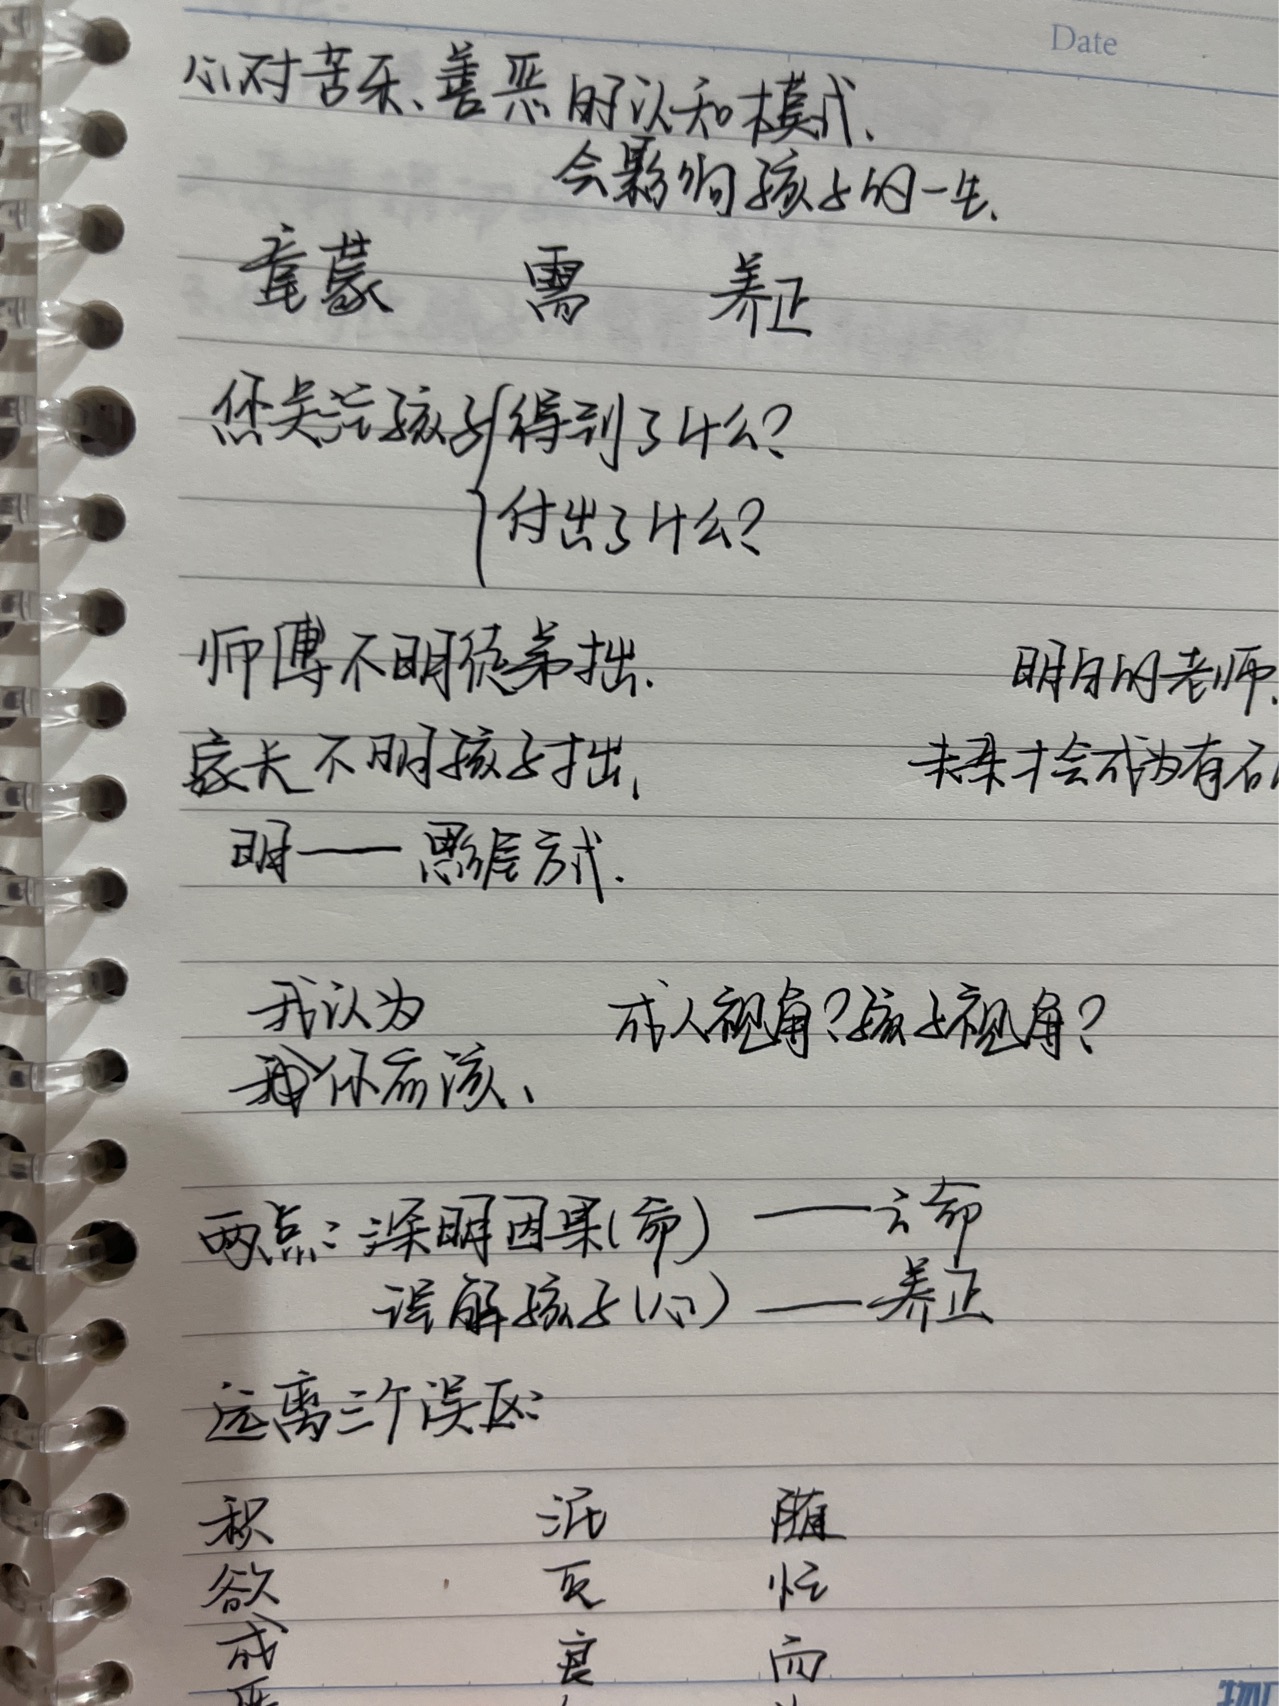 Date
心对苦乐、善恶的认知模式、
会影响孩子的一生、
童蒙 需 养正
您关注孩子{得到了什么?
付出了什么?
师傅不明徒弟拙.
明白的老师.
家长不明孩子拙,
未来才会成为有
明——思维方式.
我认为 成人视角?孩子视角?
你应该、
两点:深明因果(命)——立命
误解孩子(心)——养正
远离三个误区:
积 泥 随
欲 瓦 忙
成 良 而